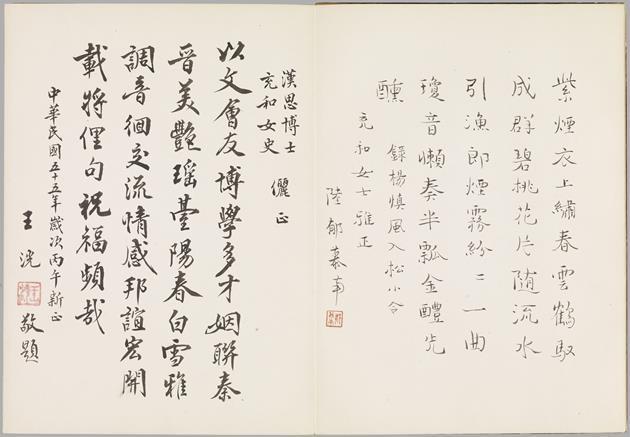 紫煙衣上繡春雲鶴馭
成群碧桃花片随流水
引漁郎煙霧紛〻一曲
瓊音懶奏半瓢金醴先
醺
錄楊慎風入松小令
充和女士雅正
陸郁慕
漢思博士
充和女史 儷正
以文會友博學多才姻聯秦
晉美艷瑤臺陽春白雪雅
調音徊交流情感邦誼宏開
載將俚句祝福頻哉
中華民國五十五年歲次丙午新正
王洸 敬題